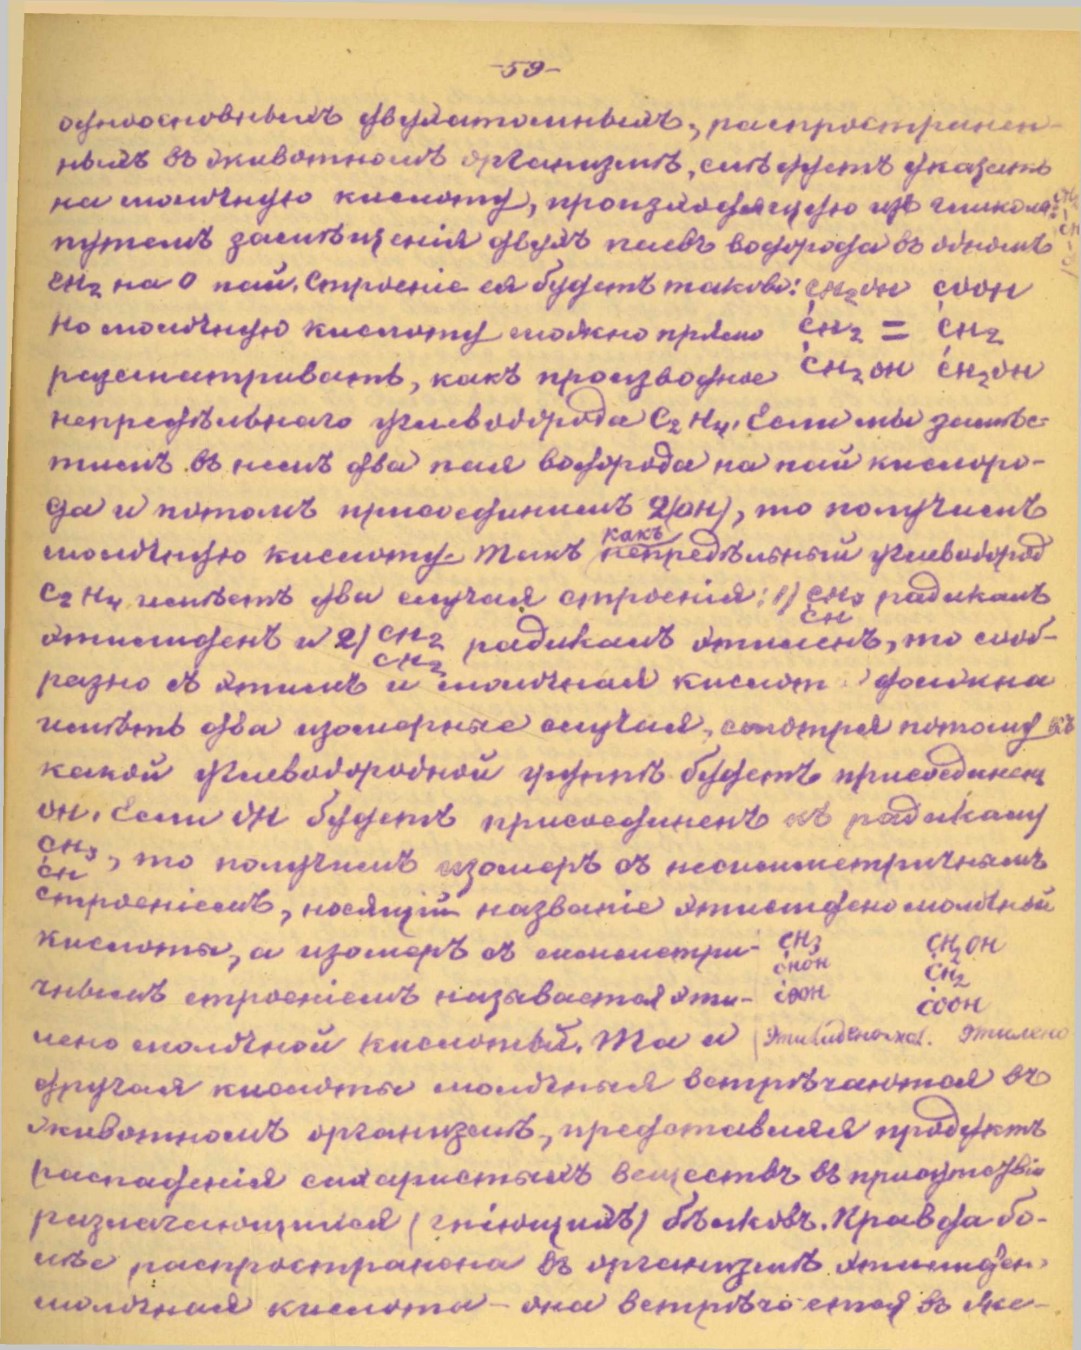 -59-
одноосновнымъ двухатомнымъ, распространен-
нымъ въ животномъ организмѣ, слѣдуетъ указать
на молочную кислоту, происходящую изъ гликоля
путемъ замѣщенія двухъ паевъ водорода въ одномъ
CH₂ на O пай. Строеніе ея будетъ таково: CH₂OH COOH
Но молочную кислоту можно прямо CH₂ = CH₂
разсматривать, какъ производное CH₂OH CH₂OH
непредѣльнаго углеводорода C₂H₄. Если мы замѣс-
тимъ въ немъ два пая водорода на пай кислоро-
да и потомъ присоединимъ 2(OH), то получимъ
молочную кислоту. Такъ какъ непредѣльный углеводород
C₂H₄ имѣетъ два случая строенія: 1) CH₃ радикалъ
CH
этилиденъ и 2) CH₂ радикалъ этиленъ, то сооб-
CH₂
разно съ этимъ и молочная кислот должна
имѣть два изомерные случая, смотря потому къ
какой углеводородной группѣ будетъ присоединен
OH. Если OH будетъ присоединенъ къ радикалу
CH₃, то получимъ изомеръ съ несимметричнымъ
CH
строеніемъ, носящій названіе этилиденомолочной
кислоты, а изомеръ съ симметри- CH₃ CH₂OH
CHOH CH₂
чнымъ строеніемъ называется эти- COOH COOH
леномолочной кислотой. Та и Этилидено-мол. Этилено
другая кислоты молочныя встрѣчаются въ
животномъ организмѣ, представляя продуктъ
распаденія сахаристыхъ веществъ въ присутствіи
разлагающихся (гніющихъ) бѣлковъ. Правда бо-
лѣе распространена въ организмѣ этилиден
молочная кислота - она встрѣчается въ же-